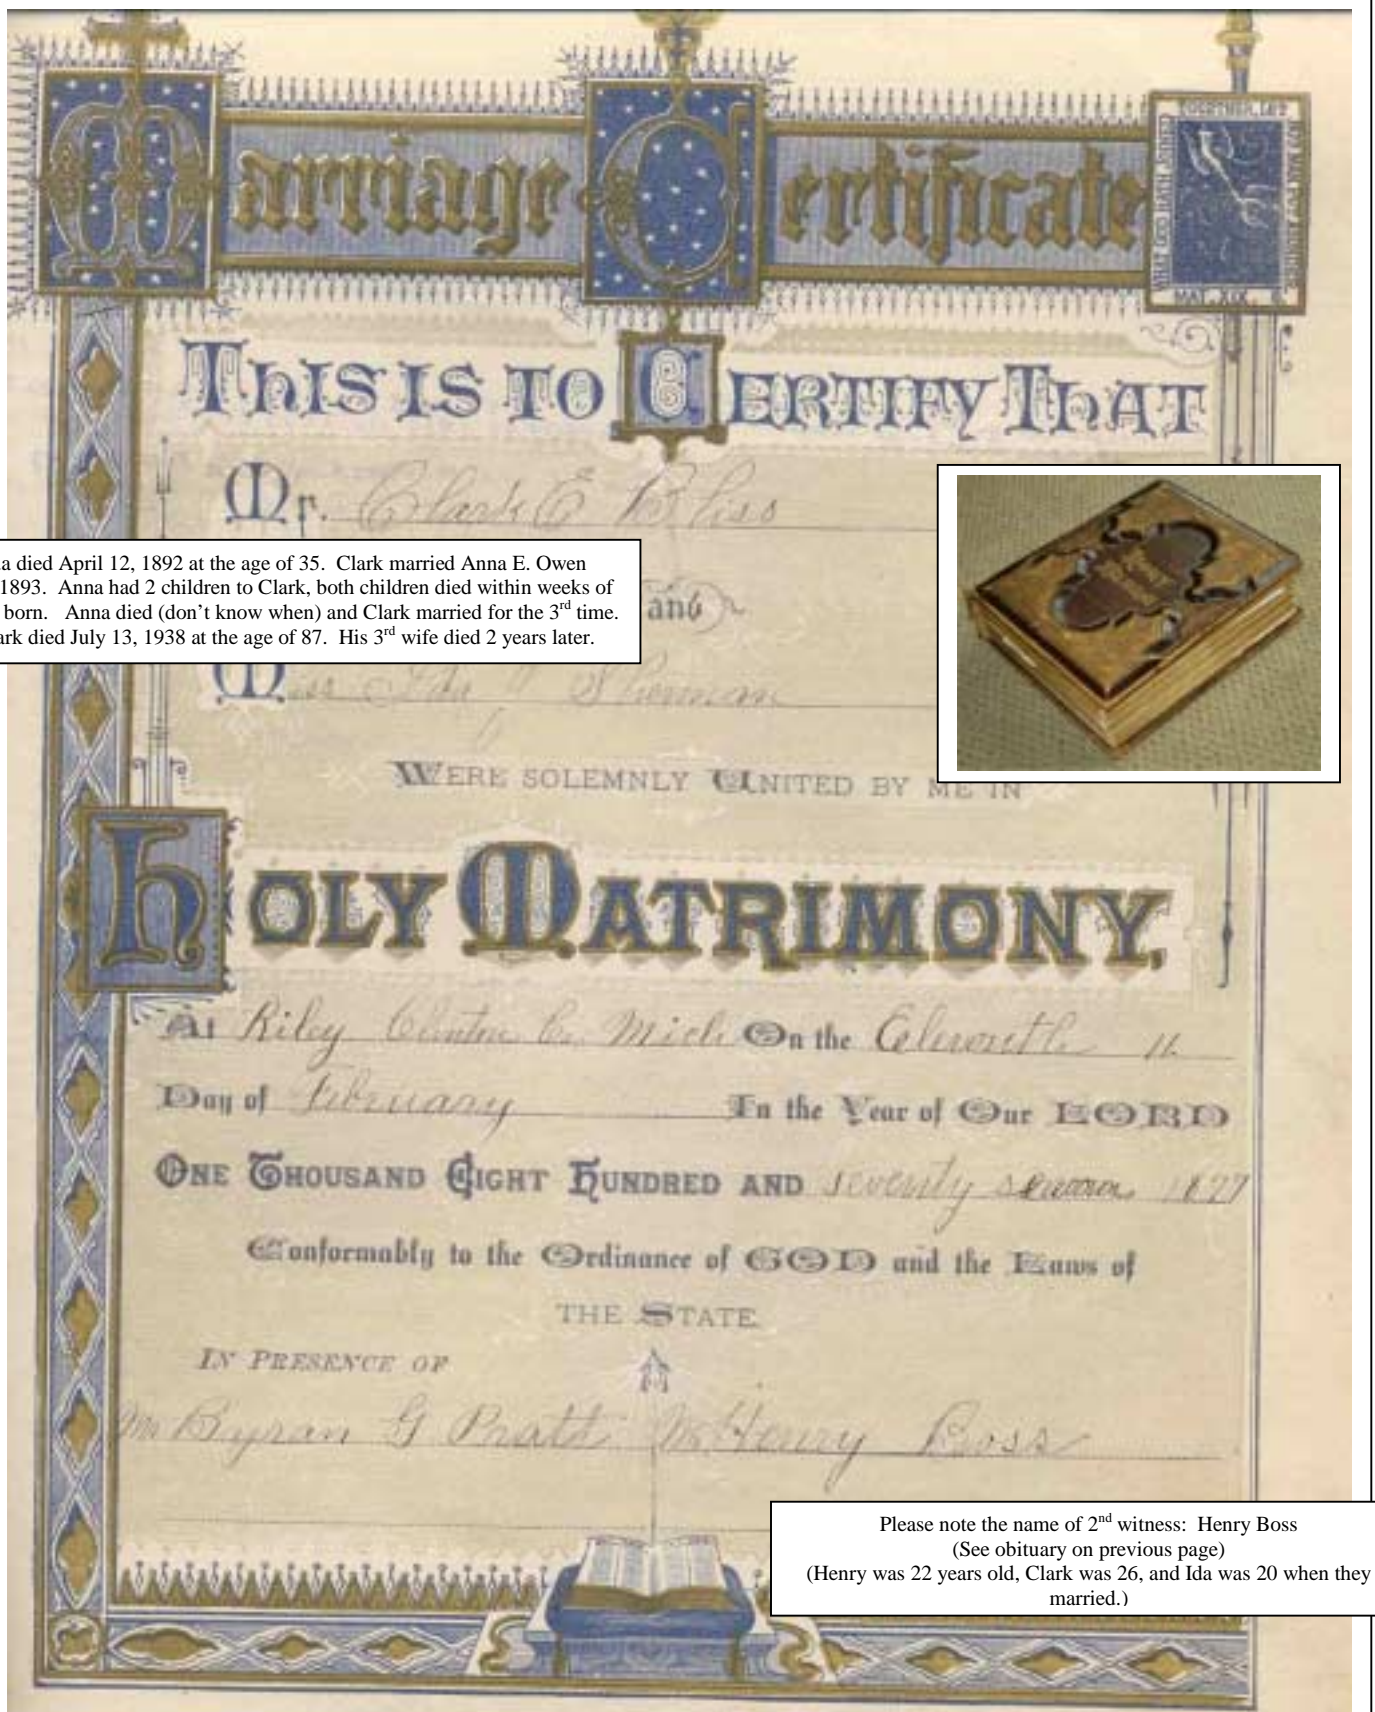 Marriage Certificate
WHAT GOD HATH JOINED
TOGETHER, LET
MAT. XIX. 6.
THIS IS TO CERTIFY THAT
Mr. Clark E Bliss
a died April 12, 1892 at the age of 35. Clark married Anna E. Owen
1893. Anna had 2 children to Clark, both children died within weeks of
born. Anna died (don't know when) and Clark married for the 3rd time.
ark died July 13, 1938 at the age of 87. His 3rd wife died 2 years later.
and
Miss Ida Sherman
WERE SOLEMNLY UNITED BY ME IN
HOLY MATRIMONY,
At Riley Clinton Co. Mich On the Eleventh 11
Day of February In the Year of Our LORD
ONE THOUSAND EIGHT HUNDRED AND seventy seven 1877
Conformably to the Ordinance of GOD and the Laws of
THE STATE
IN PRESENCE OF
Mr Byran G Pratt Mr Henry Boss
Please note the name of 2nd witness: Henry Boss
(See obituary on previous page)
(Henry was 22 years old, Clark was 26, and Ida was 20 when they
married.)